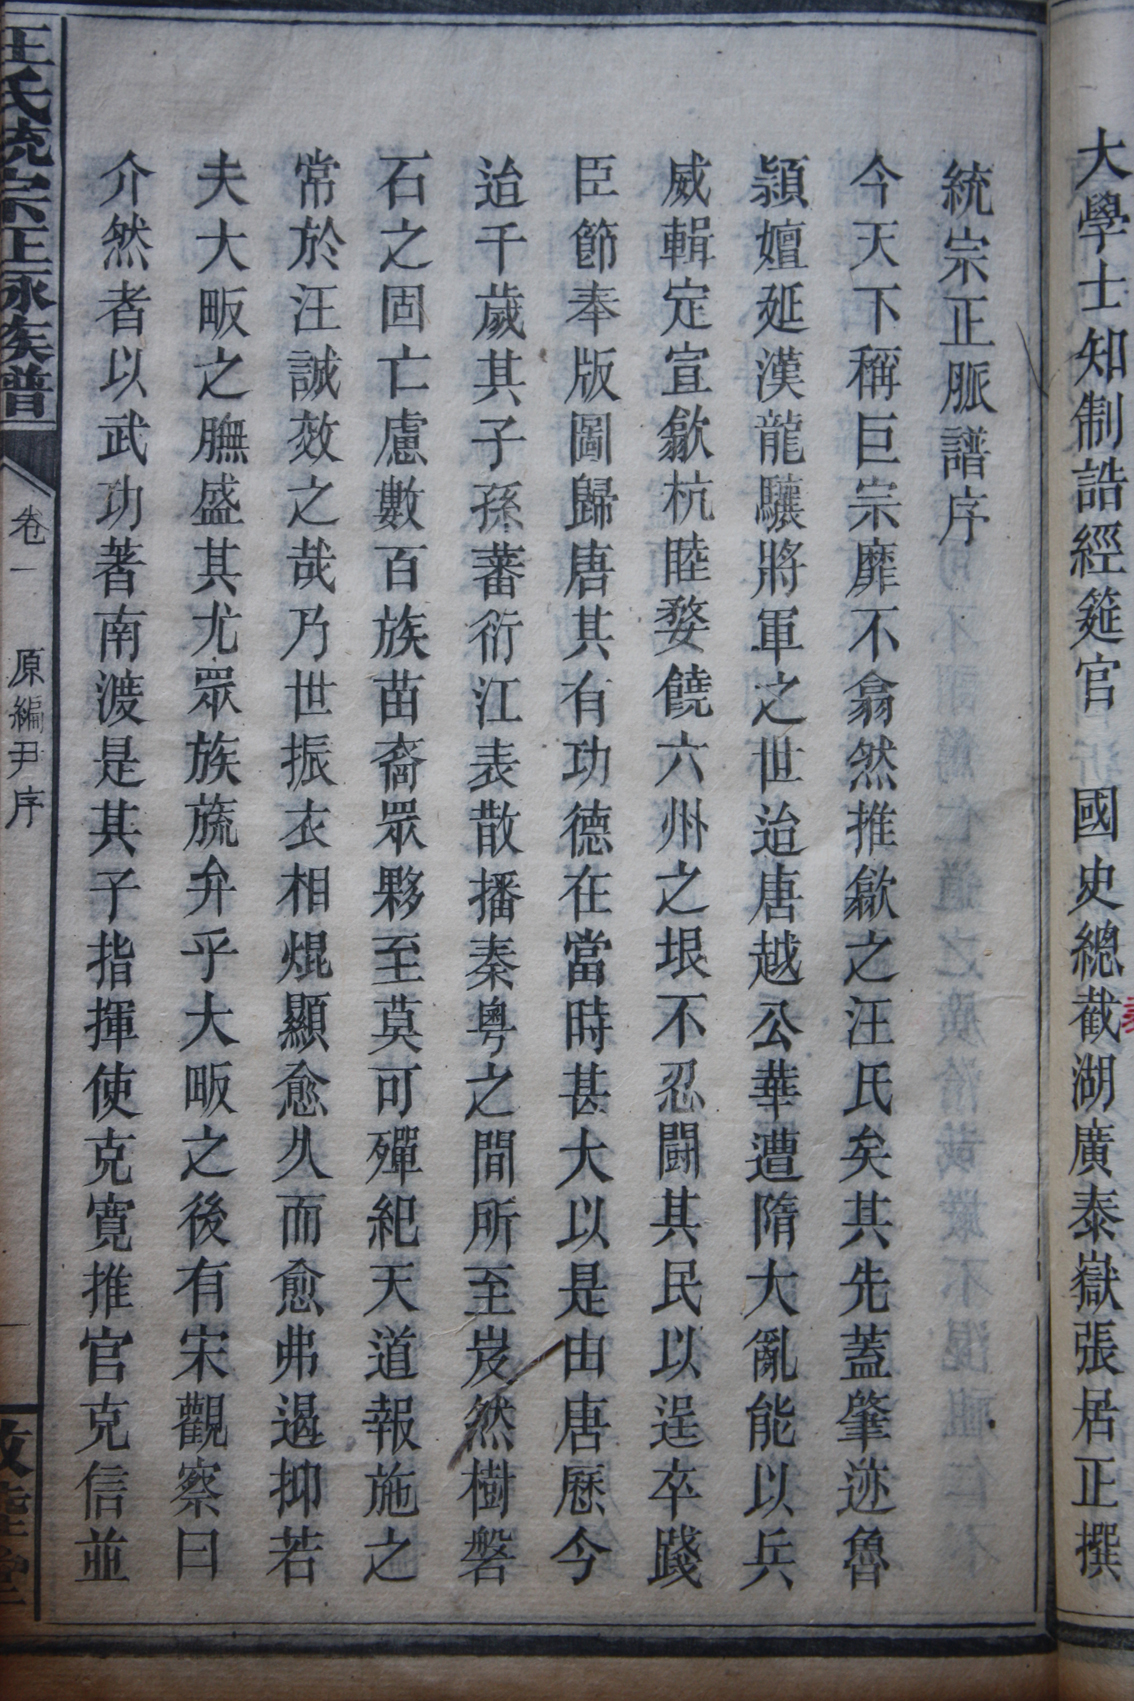 大學士知制誥經筵官 國史總裁湖廣泰嶽張居正撰
統宗正脈譜序
今天下稱巨宗靡不翕然推歙之汪氏矣其先蓋肇迹魯
潁嬗延漢龍驤將軍之世迨唐越公華遭隋大亂能以兵
威輯定宣歙杭睦婺饒六州之垠不忍鬬其民以逞卒踐
臣節奉版圖歸唐其有功德在當時甚大以是由唐歷今
迨千歲其子孫蕃衍江表散播秦粵之間所至岌然樹磐
石之固亡慮數百族苗裔眾夥至莫可殫紀天道報施之
常於汪誠效之哉乃世振衣相焜顯愈久而愈弗遏抑若
夫大畈之膴盛其尤眾族旒弁乎大畈之後有宋觀察曰
介然者以武功著南渡是其子指揮使克寬推官克信並
汪氏統宗正脉族譜
卷一
原編尹序
一